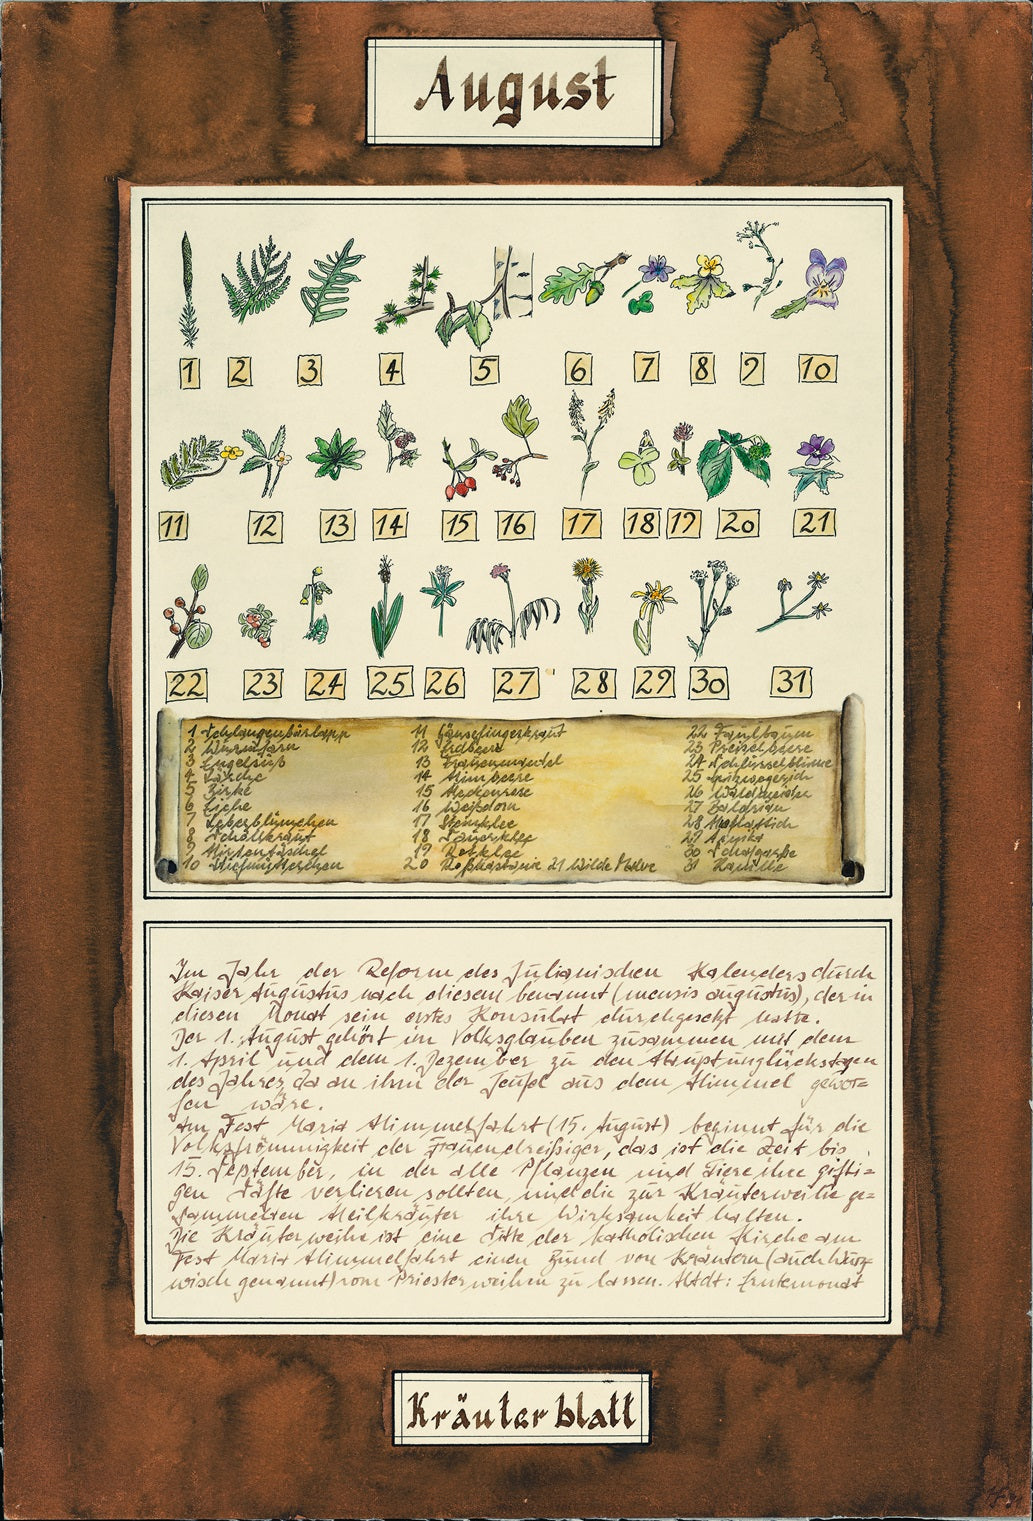 August
1 2 3 4 5 6 7 8 9 10
11 12 13 14 15 16 17 18 19 20 21
22 23 24 25 26 27 28 29 30 31
1 Schlangenbärlapp
2 Wurmfarn
3 Engelsüß
4 Lärche
5 Birke
6 Eiche
7 Leberblümchen
8 Schöllkraut
9 Hirtentäschel
10 Stiefmütterchen
11 Gänsefingerkraut
12 Erdbeere
13 Frauenmantel
14 Himbeere
15 Heckenrose
16 Weißdorn
17 Steinklee
18 Sauerklee
19 Rotklee
20 Roßkastanie 21 Wilde Malve
22 Faulbaum
23 Preiselbeere
24 Schlüsselblume
25 Spitzwegerich
26 Waldmeister
27 Baldrian
28 Huflattich
29 Arnika
30 Schafgarbe
31 Kamille
Im Jahr der Reform des Julianischen Kalenders durch
Kaiser Augustus nach diesem benannt (mensis augustus), der in
diesen Monat sein erstes Konsulat durchgesetzt hatte.
Der 1. August gehört im Volksglauben zusammen mit dem
1. April und dem 1. Dezember zu den Hauptunglückstagen
des Jahres, da an ihm der Teufel aus dem Himmel gewor=
fen wäre.
Am Fest Maria Himmelfahrt (15. August) beginnt für die
Volksfrömmigkeit der Frauendreißiger, das ist die Zeit bis
15. September, in der alle Pflanzen und Tiere ihre gifti=
gen Säfte verlieren sollten, und die zur Kräuterweihe ge=
sammelten Heilkräuter ihre Wirksamkeit halten.
Die Kräuterweihe ist eine Sitte der katholischen Kirche am
Fest Maria Himmelfahrt einen Bund von Kräutern (auch Würz=
wisch genannt) vom Priester weihen zu lassen. Ahdt: Erntemonat
Kräuterblatt